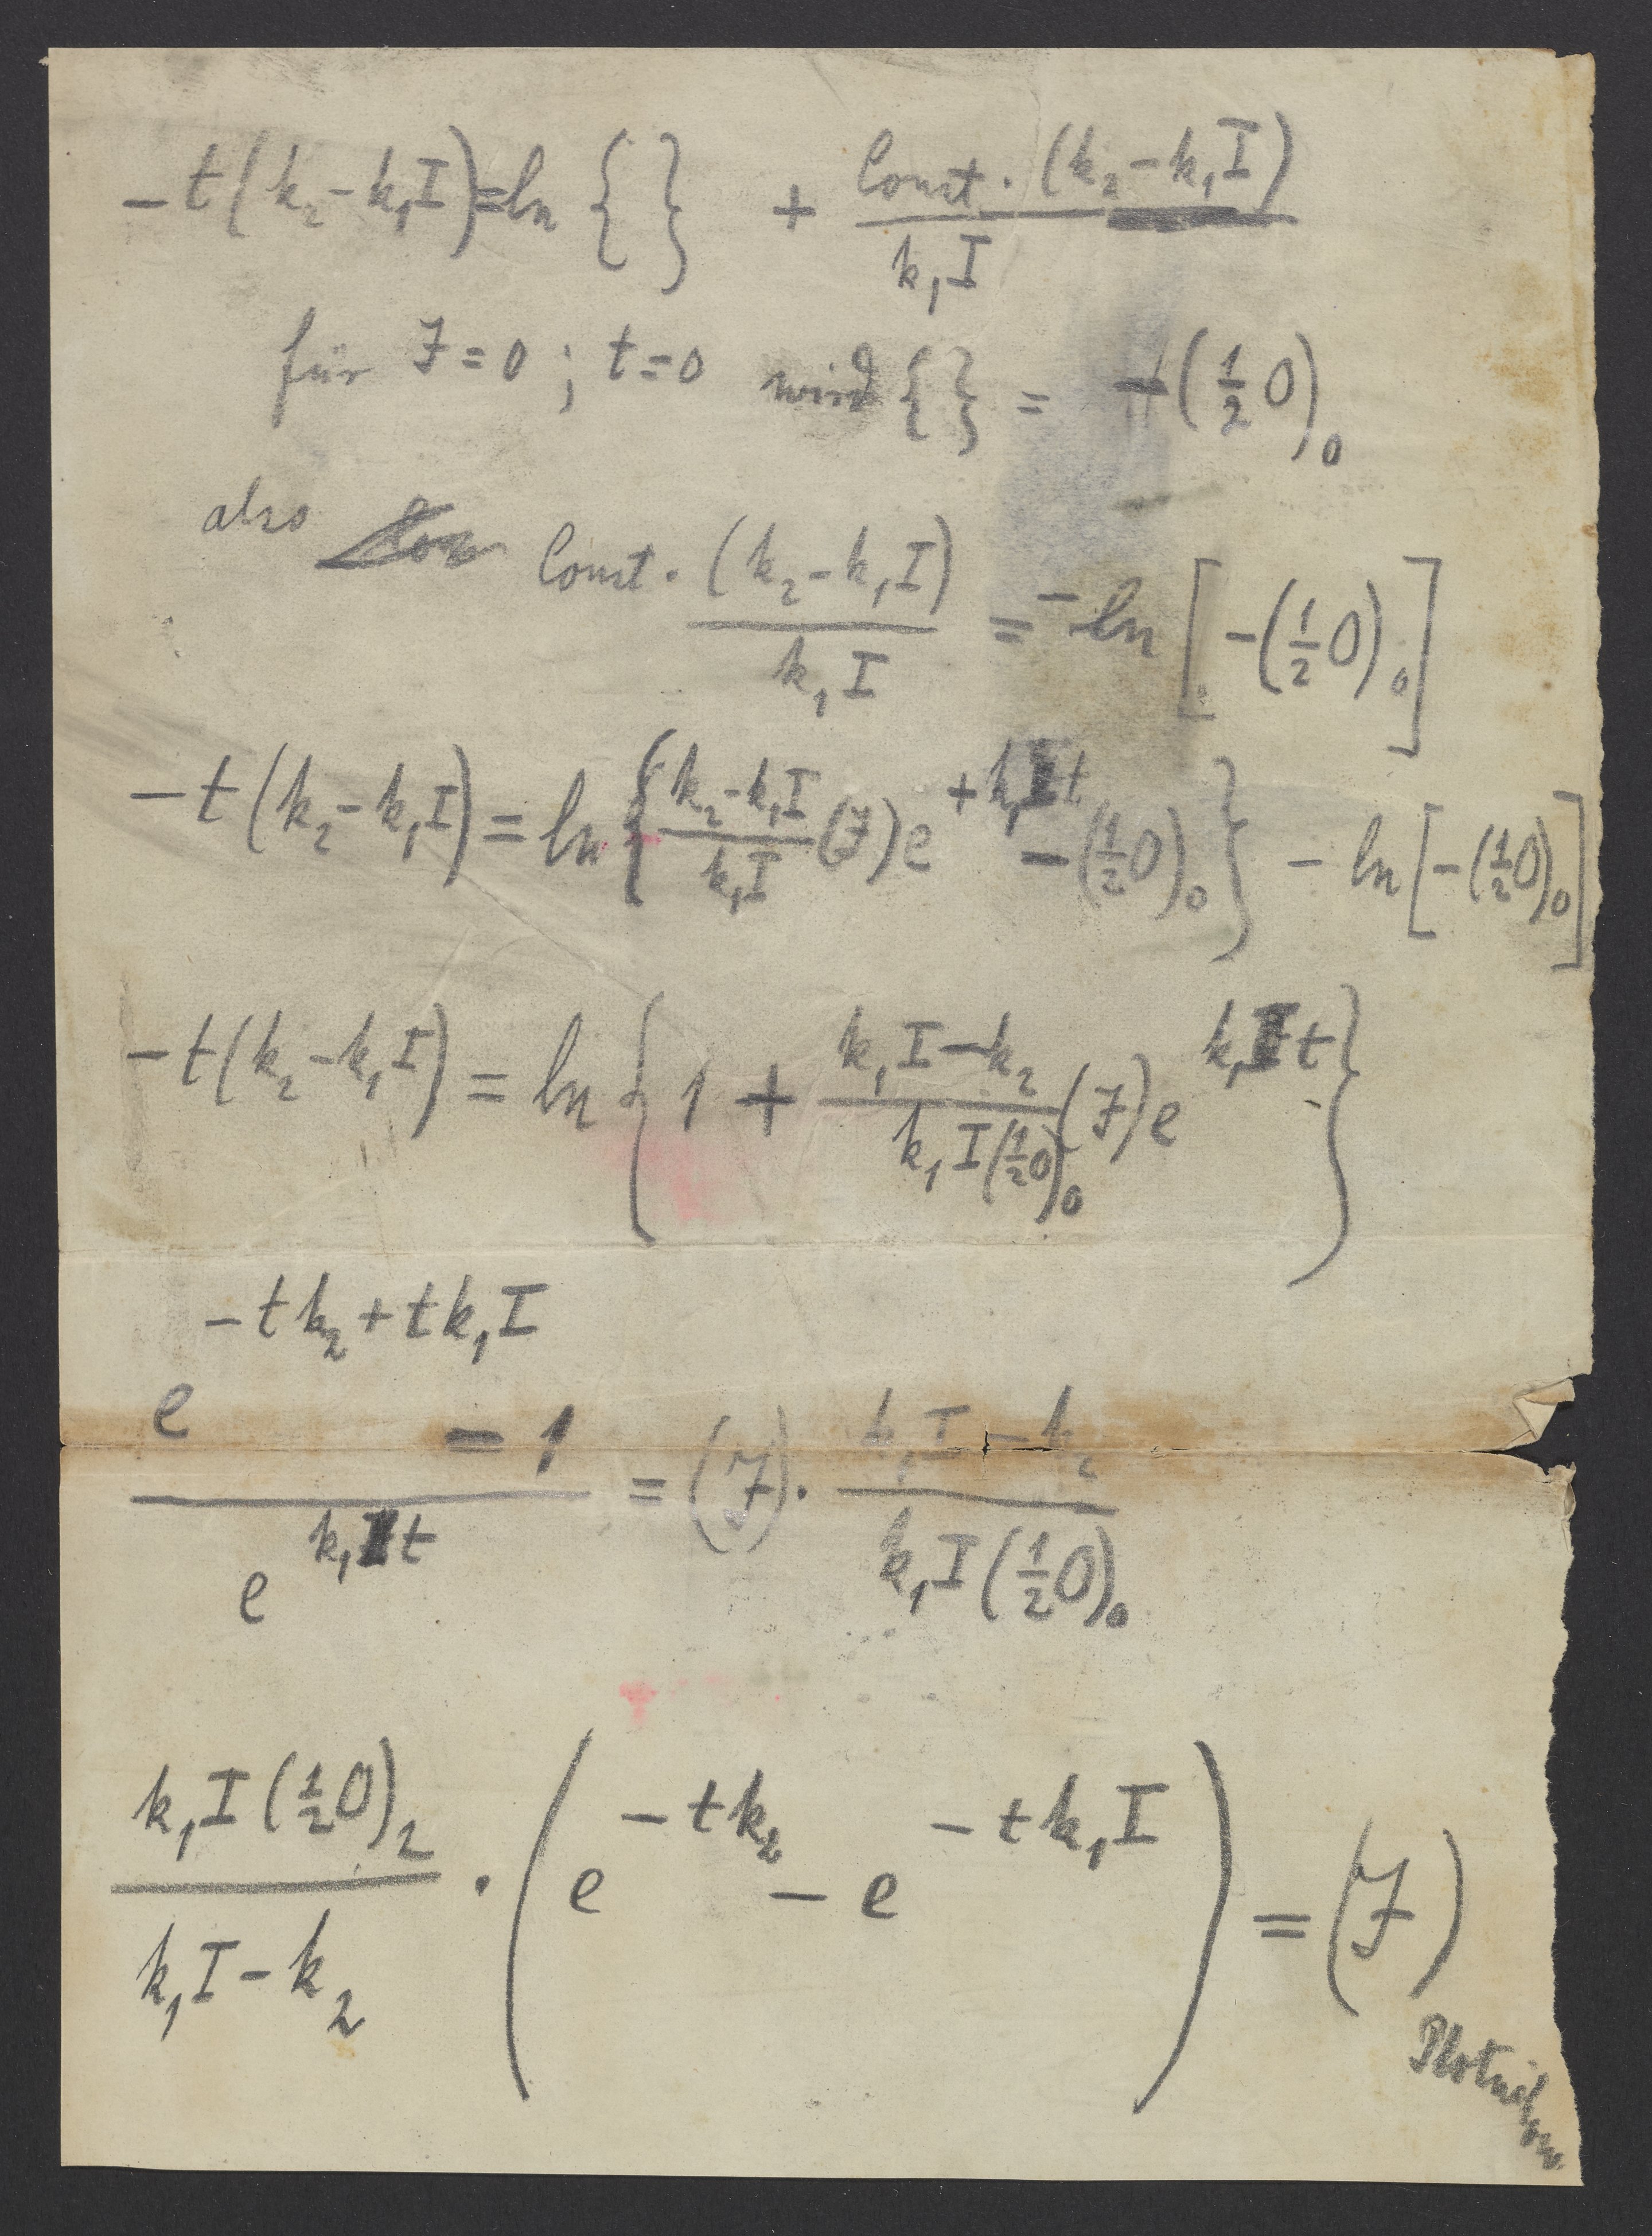 − t (k₂ − k₁I) = ln { } + Const. (k₂ − k₁I) / k₁I
für J = 0 ; t = 0 wird { } = − (½ O)₀
also Const. (k₂ − k₁I) / k₁I = − ln [ − (½ O)₀ ]
− t (k₂ − k₁I) = ln { (k₂ − k₁I) / k₁I (J) e^(+ k₁I t) − (½ O)₀ } − ln [ − (½ O)₀ ]
− t (k₂ − k₁I) = ln { 1 + (k₁I − k₂) / k₁I (½ O)₀ (J) e^(k₁I t) }
(e^(− t k₂ + t k₁I) − 1) / e^(k₁I t) = (J) · (k₁I − k₂) / k₁I (½ O)₀
k₁I (½ O)₂ / (k₁I − k₂) · ( e^(− t k₂) − e^(− t k₁I) ) = (J)